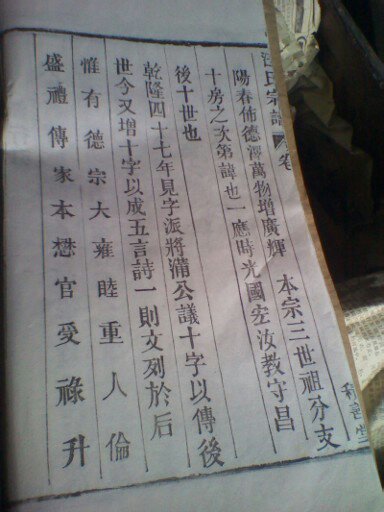 氏宗譜 卷
善堂
陽春佈德澤萬物增廣輝 本宗三世祖分支
十房之次第諱也一應時光國宏汝教守昌
後十世也
乾隆四十七年見字派將滿公議十字以傳後
世今又增十字以成五言詩一則文列於后
惟有德宗大雍睦重人倫
盛禮傳家本懋官受祿升